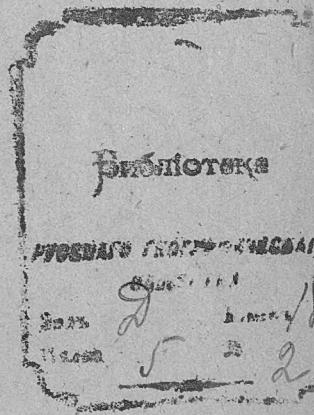 Библіотека
РУССКАГО ГЕОГРАФИЧЕСКАГ
ОБЩЕСТВА
Залъ Д
Полка 5 № 2